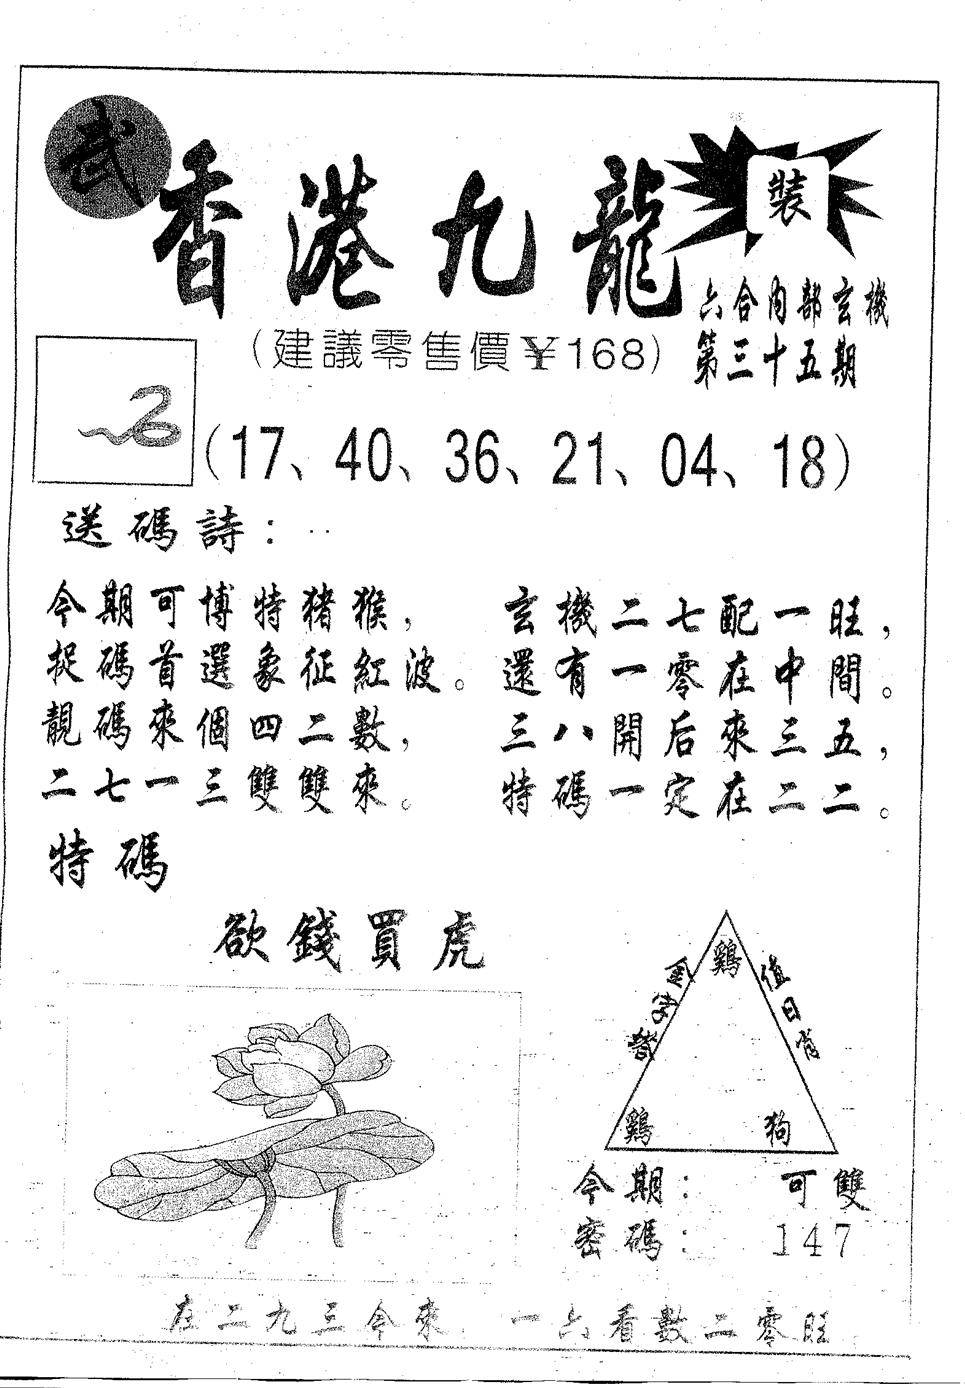 武
香港九龍
裝
六合內部玄機
第三十五期
(建議零售價¥168)
(17、40、36、21、04、18)
送碼詩：
今期可博特猪猴，
捉碼首選象征紅波。
靚碼來個四二數，
二七一三雙雙來。
玄機二七配一旺，
還有一零在中間。
三八開后來三五，
特碼一定在二二。
特碼
欲錢買虎
金字塔
鷄
值日肖
鷄
狗
今期： 可雙
密碼： 147
在二九三今來 一六看數二零旺